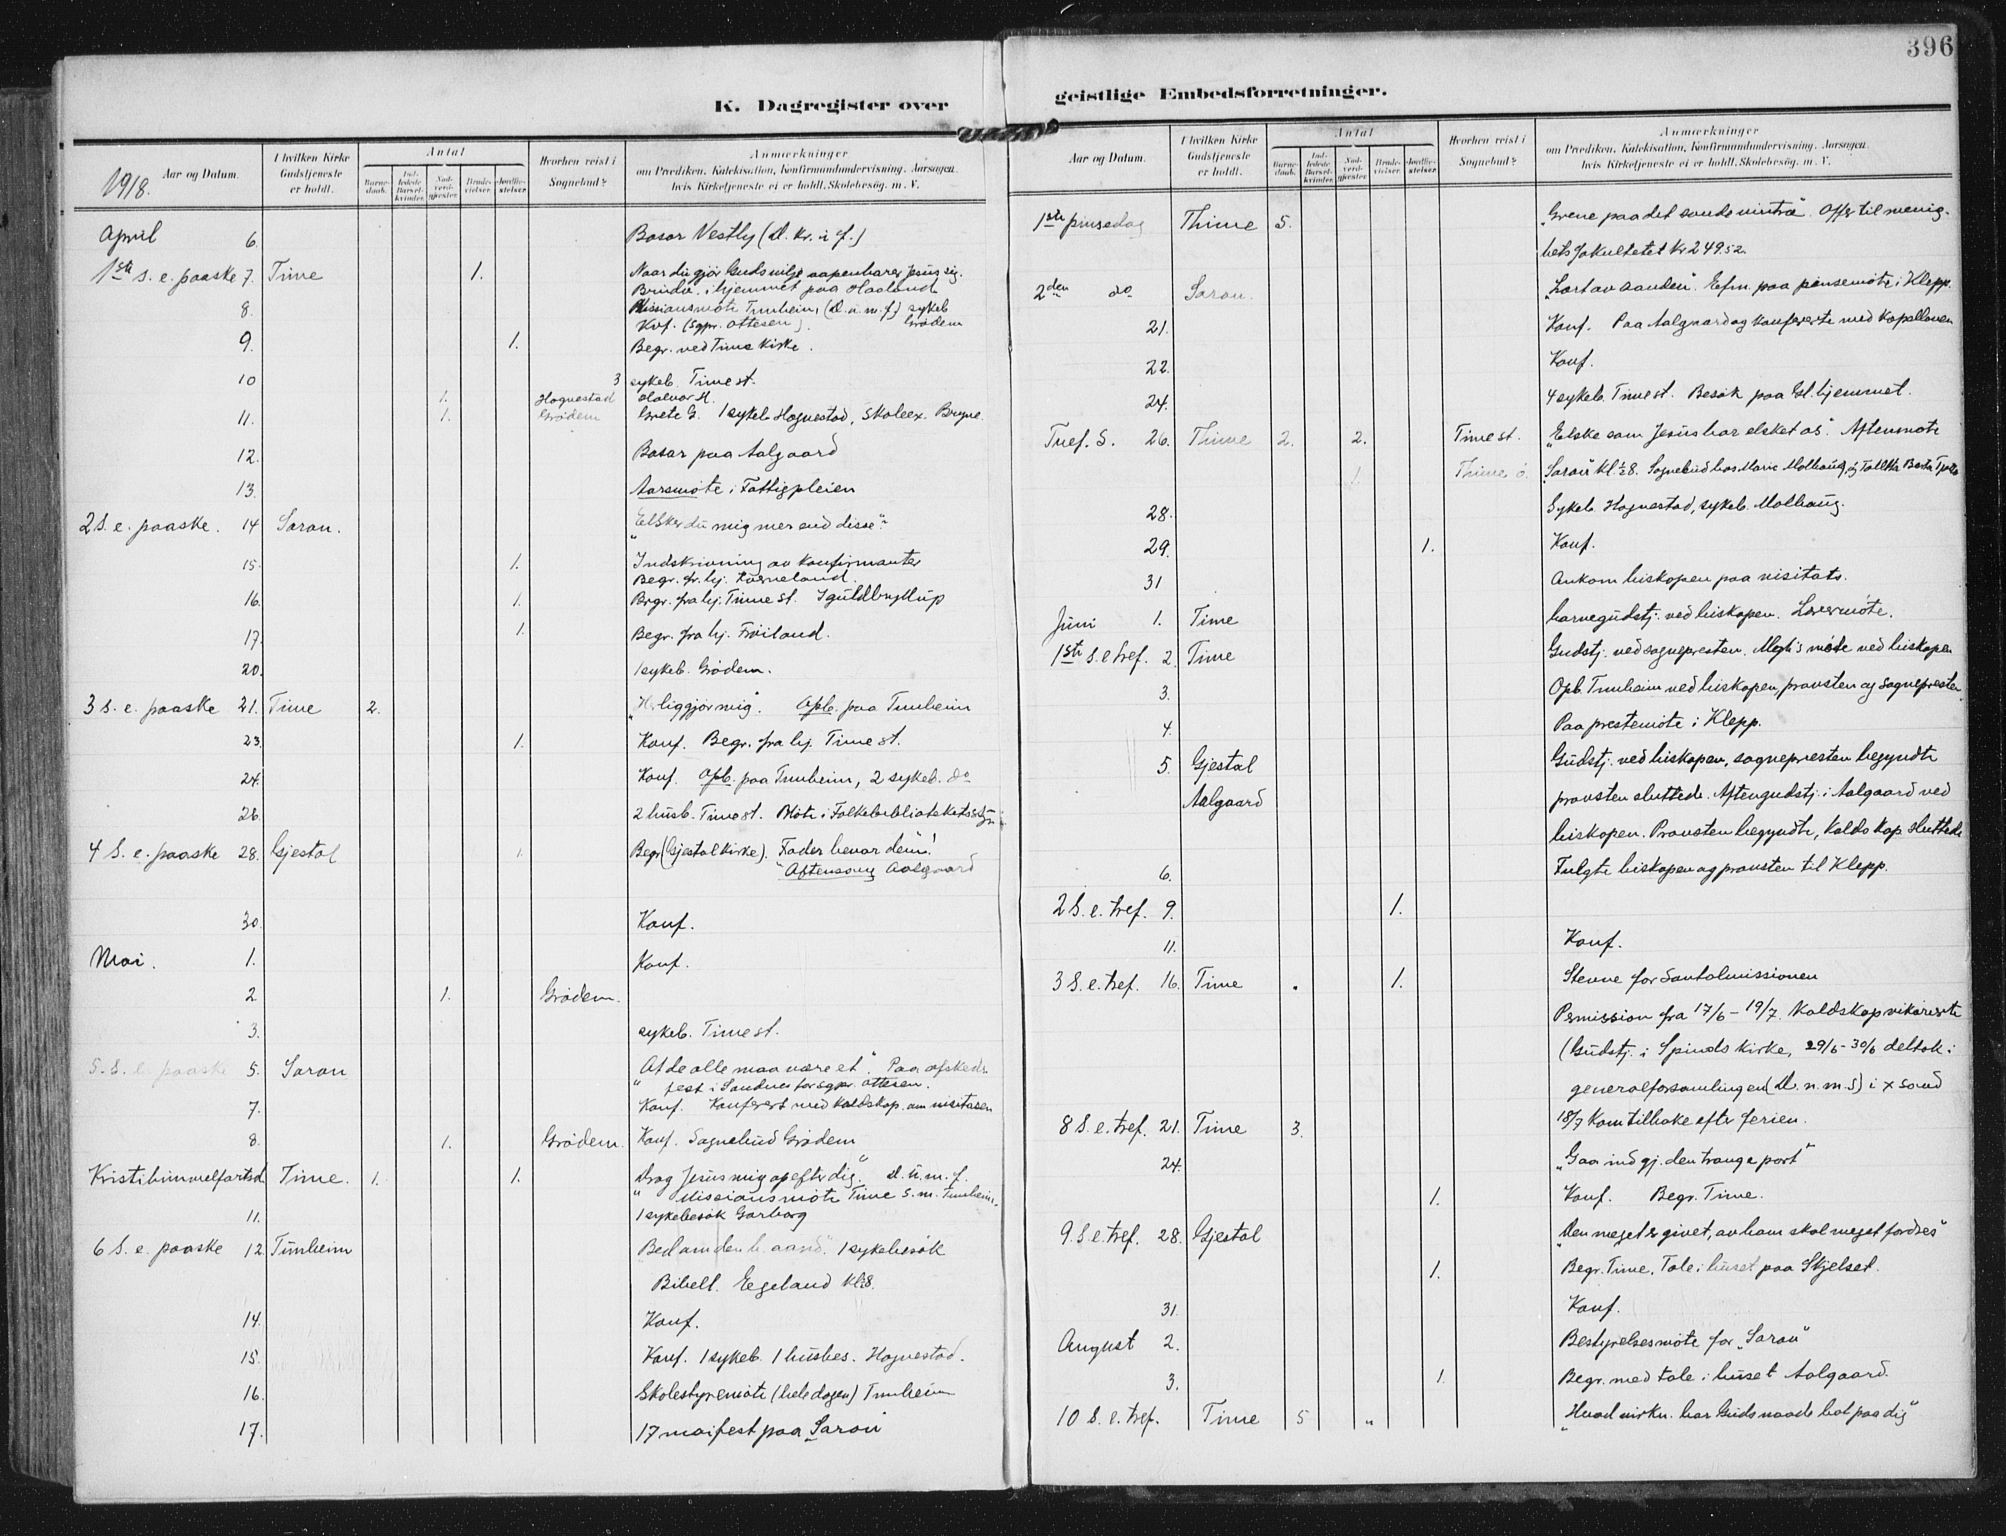 396
K. Dagregister over
Aar og Datum.
I hvilken Kirke Gudstjeneste er holdt.
Antal
Barnedaab.
Indledede Barselkvinder.
Nadverdgjester
Brudevielser.
Jordfæstelser.
Hvorhen reist i Sognebud?
Anmærkninger
om Prædiken, Katekisation, Konfirmandundervisning, Aarsagen
hvis Kirketjeneste ei er holdt, Skolebesøg, m. V.
1918.
April 6. Basar Vestly (D. kr. i f.)
1ste s. e. paaske 7. Time 1. Naar du gjør Guds vilje aapenbarer Jesus sig.
Brudev. i hjemmet paa Haaland
8. Missionsmøte Tunheim, (D. u. m. f) sykeb
Kof. (Sgpr. Ottesen). Grødem
9. 1. Begr. ved Time kirke.
10 3 sykeb. Time st.
1. Hognestad Halvor H.
11. 1. Grødem Grete G. 1 sykeb. Hognestad, Skoleex. Bryne.
12. Basar paa Aalgaard
13. Aarsmøte i Fattigpleien
2 S. e. paaske. 14 Saron. "Elsker du mig mer end disse"
15. 1. Indskrivning av konfirmanter
Begr. fr. hj.
16. 1. Begr. fra hj. Time st. I guldbryllup
17. 1. Begr. fra hj. Frøiland.
20. 1 sykeb. Grødem.
3 s. e. paaske 21. Time 2. "Herliggjør mig". Opb. paa Tunheim
23. 1. Konf. Begr. fra hj. Time st.
24. Konf. Opb. paa Tunheim, 2 sykeb. do
26. 2 husb. Time st. Møte i Folkebibliotekets
4 S. e. paaske 28. Gjestal 1. Begr (Gjestal kirke). Fader bevar dem!
Aftensang Aalgaard
30 Konf.
Mai. 1. Konf.
2 1. Grødem.
3. sykeb. Time st.
5. S. e. paaske 5. Saron "At de alle maa være et". Paa afskeds
fest i Sandnes for sgpr. Ottesen.
7. Konf. Konferert med kaldskap. om visitasen
8. 1. Grødem. Konf. Sognebud Grødem
Kristihimmelfartsd Time. 1. 1. "Drag Jesus mig op efter dig". D. u. m. f.
Missionsmøte Time s. m. Tunheim.
11. 1 sykebesøk Garborg
6 S. e. paaske 12 Tunheim Bed om den h. aand". 1 sykebesøk
Bibell. Eegeland kl. 8.
14. Konf.
15. Konf. 1 sykeb. 1 husbes. Hognestad.
16. Skolestyremøte (hele dagen) Tunheim
17. 17 maifest paa Saron
geistlige Embedsforretninger.
Aar og Datum.
I hvilken Kirke Gudstjeneste er holdt.
Antal
Barnedaab.
Indledede Barselkvinder.
Nadverdgjester
Brudevielser.
Jordfæstelser.
Hvorhen reist i Sognebud?
Anmærkninger
om Prædiken, Katekisation, Konfirmandundervisning, Aarsagen
hvis Kirketjeneste ei er holdt, Skolebesøg, m. V.
1ste pinsedag Thime 5. "Grene paa det sande vintræ". Offer til menig-
hetsfakultetet kr 249.52
2den do Saron. "Lært av aanden". Efm. paa pinsemøte i Klepp.
21. Konf. Paa Aalgaard og konfererte med kapellanen
22. Konf.
24. 4 sykeb. Time st. Besøk paa Gl. hjemmet.
Tref. S. 26. Thime 2. 2. Time st. "Elske som Jesus har elsket os". Aftenmøte
1. Thime ø. "Saron" kl ½8. Sognebud hos Marie Molhaug og
28. Sykeb. Hognestad, sykeb. Molhaug.
29. 1. Konf.
31 Ankom biskopen paa visitats.
Juni 1. Time barnegudstj. ved biskopen. Lærermøte.
1ste S. e tref. 2. Time Gudstj. ved sognepresten. Mgh's møte ved biskopen
3. Opb. Tunheim ved biskopen, provsten og sognepresten
4. Paa prestemøte i Klepp.
5. Gjestal Gudstj. ved biskopen, sognepresten begyndte
Aalgaard provsten sluttede. Aftengudstj. i Aalgaard ved
biskopen. Provsten begyndte, Kaldskap sluttede
6. Fulgte biskopen og provsten til Klepp.
2 S. e. tref. 9. 1.
11. Konf.
3 S. e. tref. 16. Time 1. Stevne for Santalmissionen
Permission fra 17/6 - 19/7. Kaldskap vikarierte
(Gudstj. i Spinds kirke, 29/6 - 30/6 deltok i
generalforsamlingen (D. n. m. s) i x sand
8 S. e. tref. 21. Time 3. 18/7 Kom tilbake efter ferien.
24. "Gaa ind gj. den trange port"
1. Konf. Begr. Time.
9. S. e. tref. 28. Gjestal "Den meget er givet, av ham skal meget fordres"
1. Begr. Time. Tale i huset paa Skjelset.
31. Konf.
August 2. Bestyrelsesmøte for "Saron"
3. 1. Begr. med tale i huset Aalgaard.
10 S. e. tref. Time 5 " "Hvad virkn. har Guds naade hat paa dig"